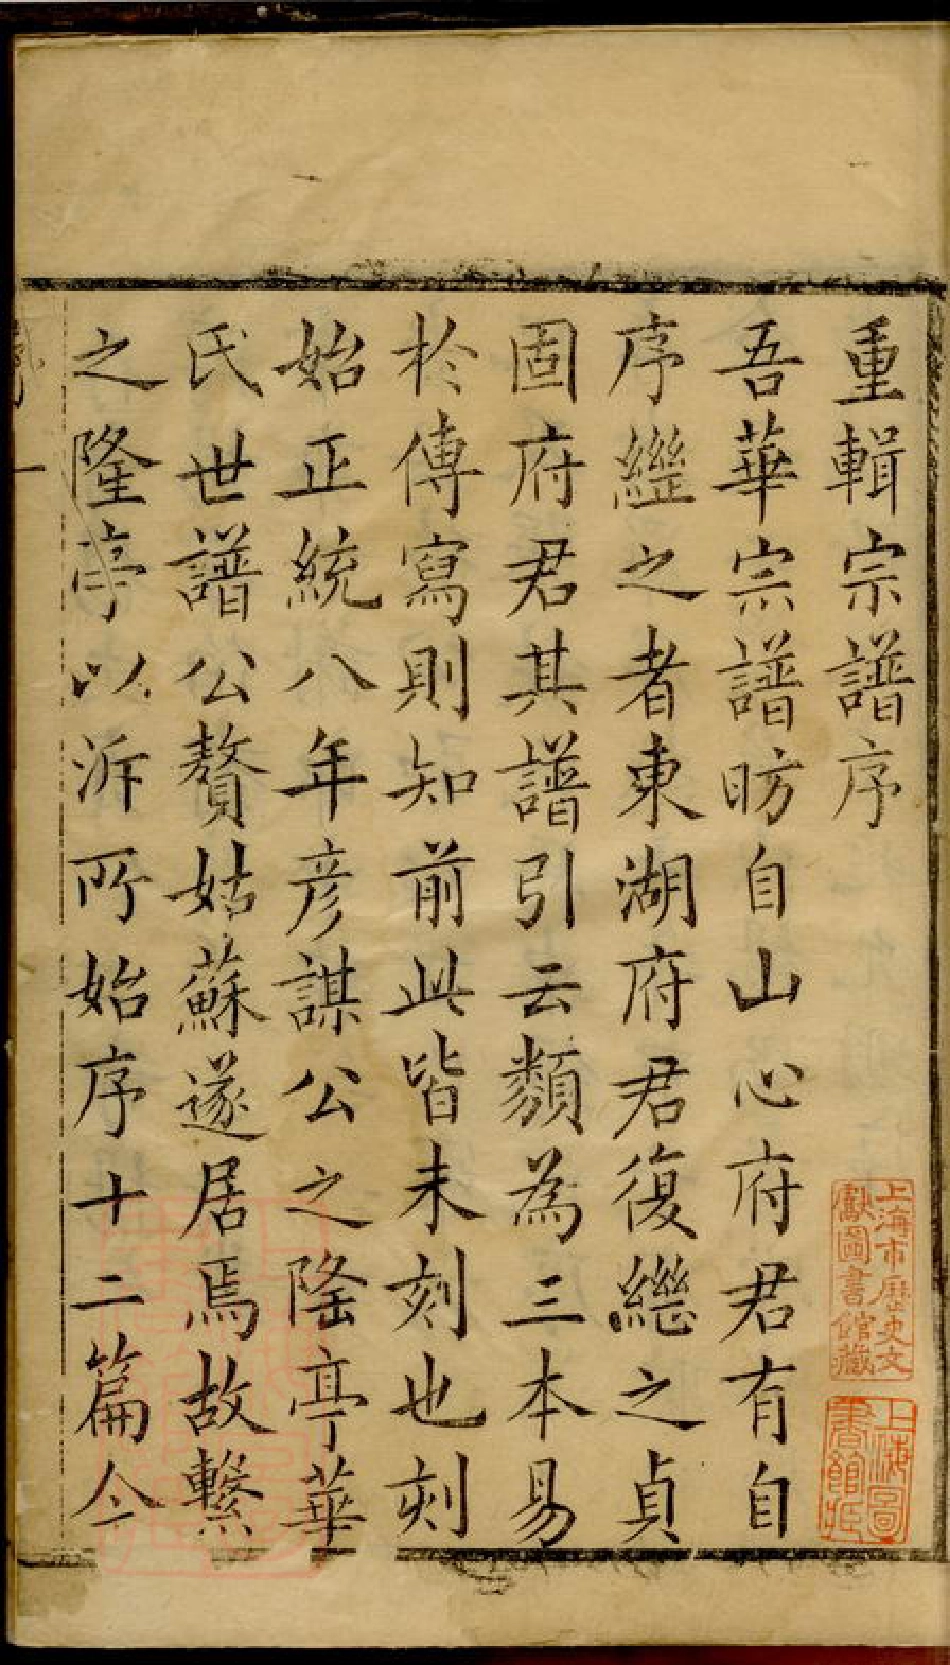 重輯宗譜序
吾華宗譜昉自山心府君有自
序繼之者東湖府君復繼之貞
固府君其譜引云類為三本易
於傳寫則知前此皆未刻也刻
始正統八年彦謀公之隆亭華
氏世譜公贅姑蘇遂居焉故繫
之隆亭以泝所始序十二篇今
上海市歷史文
獻圖書館藏
上海圖
書館藏